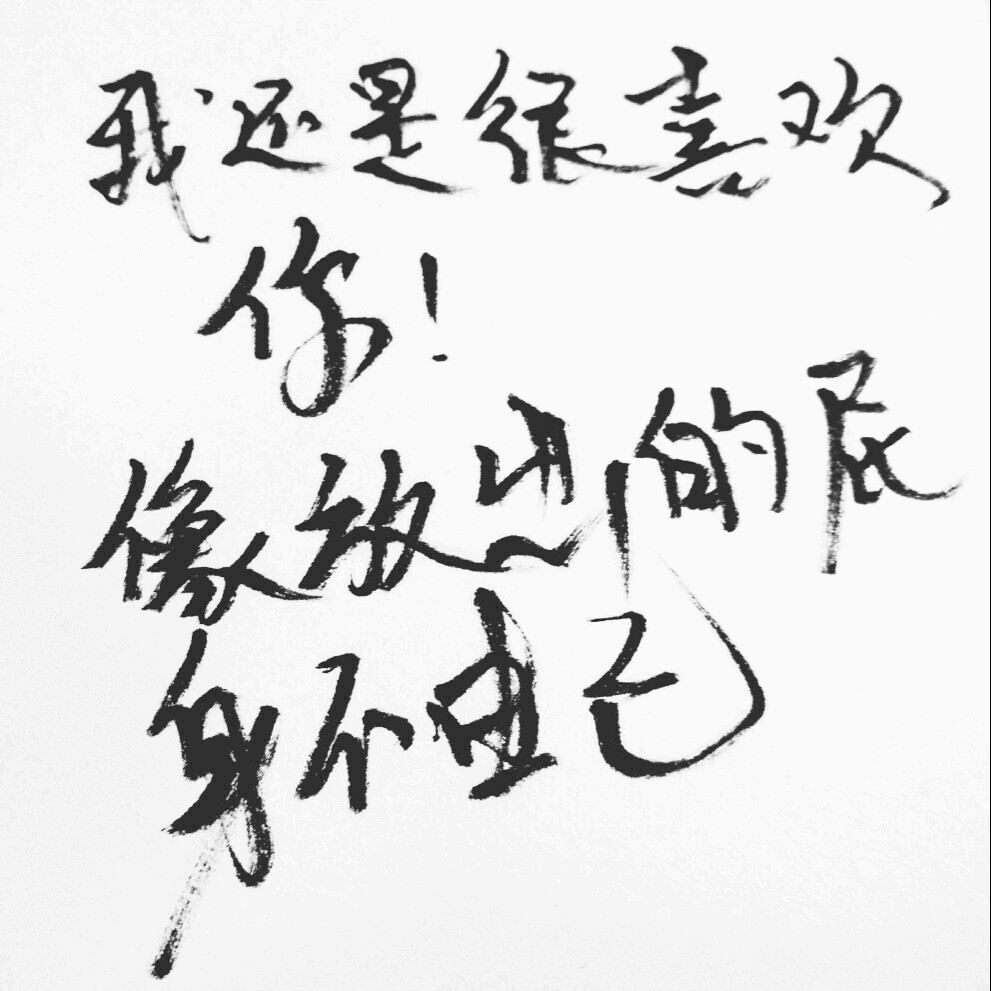 我还是很喜欢
你!
像放出的屁
身不由己